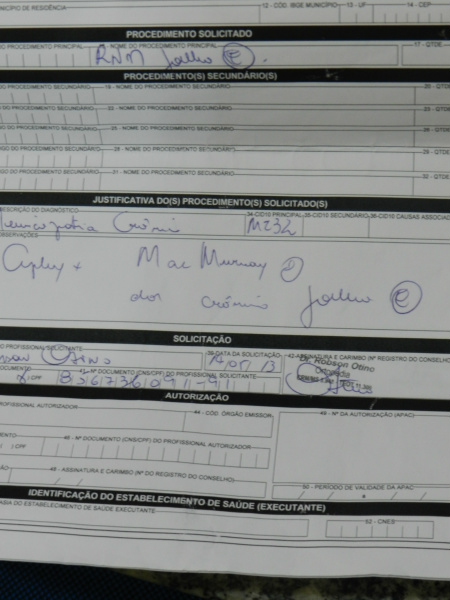 MUNICÍPIO DE RESIDÊNCIA 12 - CÓD. IBGE MUNICÍPIO 13 - UF 14 - CEP
PROCEDIMENTO SOLICITADO
DO PROCEDIMENTO PRINCIPAL - NOME DO PROCEDIMENTO PRINCIPAL 17 - QTDE
RNM Joelho E
PROCEDIMENTO(S) SECUNDÁRIO(S)
DO PROCEDIMENTO SECUNDÁRIO 19 - NOME DO PROCEDIMENTO SECUNDÁRIO 20 - QTDE
GO DO PROCEDIMENTO SECUNDÁRIO 22 - NOME DO PROCEDIMENTO SECUNDÁRIO
IGO DO PROCEDIMENTO SECUNDÁRIO 25 - NOME DO PROCEDIMENTO SECUNDÁRIO 26 - QTDE
GO DO PROCEDIMENTO SECUNDÁRIO 28 - NOME DO PROCEDIMENTO SECUNDÁRIO 29 - QTDE
IGO DO PROCEDIMENTO SECUNDÁRIO 31 - NOME DO PROCEDIMENTO SECUNDÁRIO 32 - QTDE
JUSTIFICATIVA DO(S) PROCEDIMENTO(S) SOLICITADO(S)
DESCRIÇÃO DO DIAGNÓSTICO 34-CID10 PRINCIPAL 35-CID10 SECUNDÁRIO 36-CID10 CAUSAS ASSOCIA
M232
OBSERVAÇÕES
Apley + Mac Murray
dor crônica Joelho E
SOLICITAÇÃO
DO PROFISSIONAL SOLICITANTE 39-DATA DA SOLICITAÇÃO 42-ASSINATURA E CARIMBO (Nº REGISTRO DO CONSELHO
Otino Dr. Robson Otino
Ortopedia
DOCUMENTO 41 - Nº DOCUMENTO (CNS/CPF) DO PROFISSIONAL SOLICITANTE
CPF
AUTORIZAÇÃO
PROFISSIONAL AUTORIZADOR 44 - CÓD. ÓRGÃO EMISSOR 49 - Nº DA AUTORIZAÇÃO (APAC)
MENTO 46 - Nº DOCUMENTO (CNS/CPF) DO PROFISSIONAL AUTORIZADOR
( ) CPF
48 - ASSINATURA E CARIMBO (Nº DO REGISTRO DO CONSELHO) 50 - PERÍODO DE VALIDADE DA APAC
IDENTIFICAÇÃO DO ESTABELECIMENTO DE SAÚDE (EXECUTANTE)
ASIA DO ESTABELECIMENTO DE SAÚDE EXECUTANTE 52 - CNES